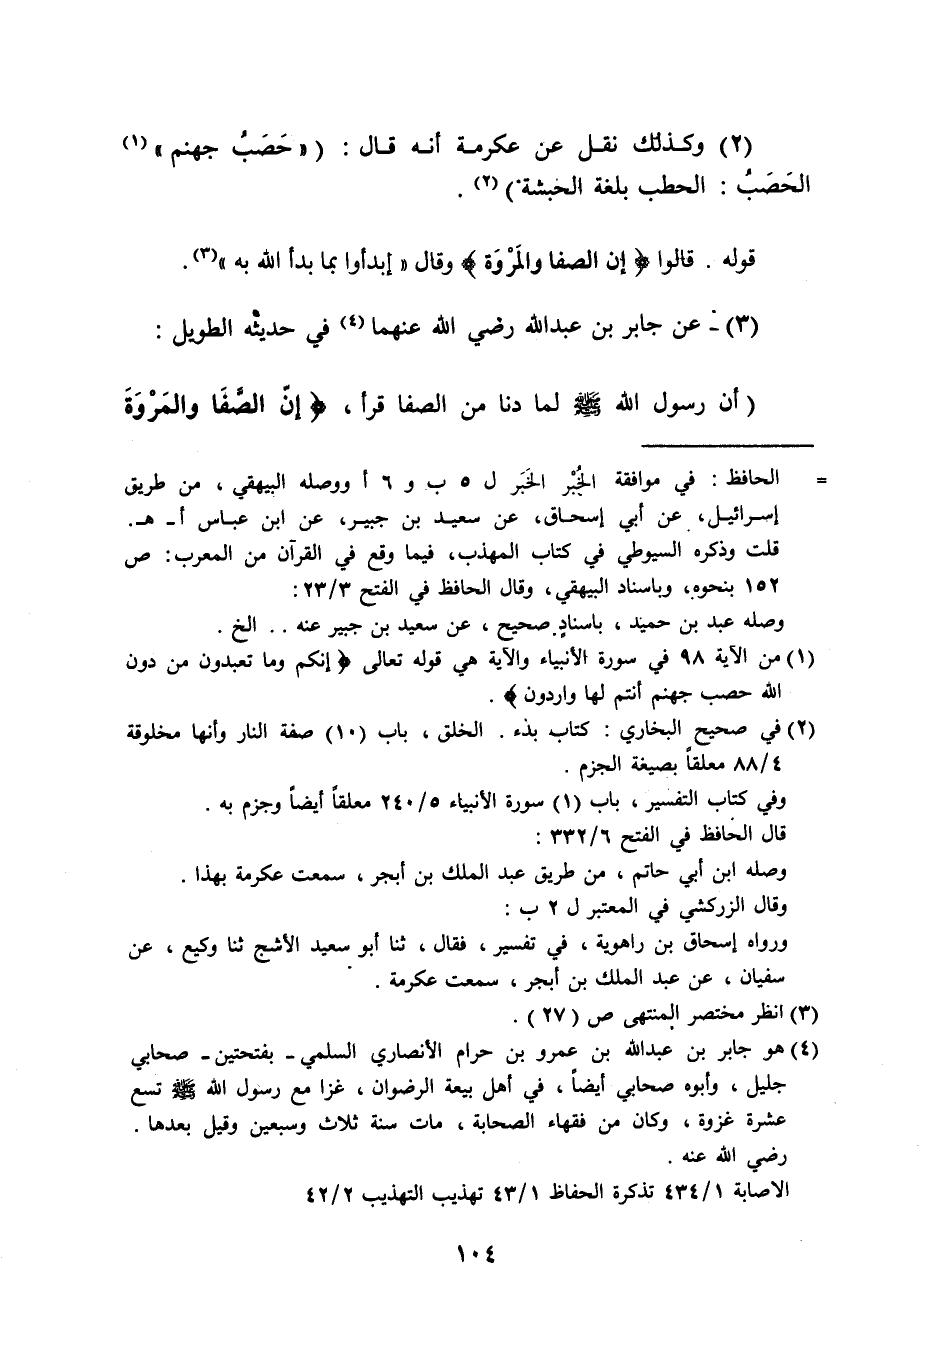 (٢) وكـذلك نقـل عن عكرمـة أنـه قـال : ( « حَصَبُ جهنم » (١)
الحَصَبُ : الحطب بلغة الحبشة ) (٢) .
قوله . قالوا ﴿ إن الصفا والمَرْوَة ﴾ وقال « إبدأوا بما بدأ الله به »(٣).
(٣) - عن جابر بن عبدالله رضي الله عنهما (٤) في حديثه الطويل :
( أن رسول الله ﷺ لما دنا من الصفا قرأ ، ﴿ إنّ الصَّفَا والمَرْوَةَ
= الحافظ : في موافقة الخُبْر الخَبَر ل ٥ ب و ٦ أ ووصله البيهقي ، من طريق
إسرائيل، عن أبي إسحاق، عن سعيد بن جبير، عن ابن عباس أ ـ هـ.
قلت وذكره السيوطي في كتاب المهذب، فيما وقع في القرآن من المعرب: ص
١٥٢ بنحوه، وباسناد البيهقي، وقال الحافظ في الفتح ٢٣/٣ :
وصله عبد بن حميد ، باسنادٍ صحيح ، عن سعيد بن جبير عنه .. الخ .
(١) من الآية ٩٨ في سورة الأنبياء والآية هي قوله تعالى ﴿ إنكم وما تعبدون من دون
الله حصب جهنم أنتم لها واردون ﴾ .
(٢) في صحيح البخاري : كتاب بدء . الخلق ، باب (١٠) صفة النار وأنها مخلوقة
٨٨/٤ معلقاً بصيغة الجزم .
وفي كتاب التفسير ، باب (١) سورة الأنبياء ٢٤٠/٥ معلقاً أيضاً وجزم به .
قال الحافظ في الفتح ٣٣٢/٦ :
وصله ابن أبي حاتم ، من طريق عبد الملك بن أبجر ، سمعت عكرمة بهذا .
وقال الزركشي في المعتبر ل ٢ ب :
ورواه إسحاق بن راهوية ، في تفسير ، فقال ، ثنا أبو سعيد الأشج ثنا وكيع ، عن
سفيان ، عن عبد الملك بن أبجر ، سمعت عكرمة .
(٣) انظر مختصر المنتهى ص ( ٢٧ ) .
(٤) هو جابر بن عبدالله بن عمرو بن حرام الأنصاري السلمي ـ بفتحتين ـ صحابي
جليل ، وأبوه صحابي أيضاً ، في أهل بيعة الرضوان ، غزا مع رسول الله ﷺ تسع
عشرة غزوة ، وكان من فقهاء الصحابة ، مات سنة ثلاث وسبعين وقيل بعدها .
رضي الله عنه .
الاصابة ٤٣٤/١ تذكرة الحفاظ ٤٣/١ تهذيب التهذيب ٤٢/٢
١٠٤